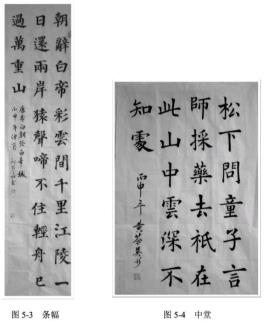 朝辭白帝彩雲間千里江陵一
日還兩岸猿聲啼不住輕舟已
過萬重山
丙申年
图 5-3 条幅
松下問童子言
師採藥去祇在
此山中雲深不
知處
丙申年
图 5-4 中堂